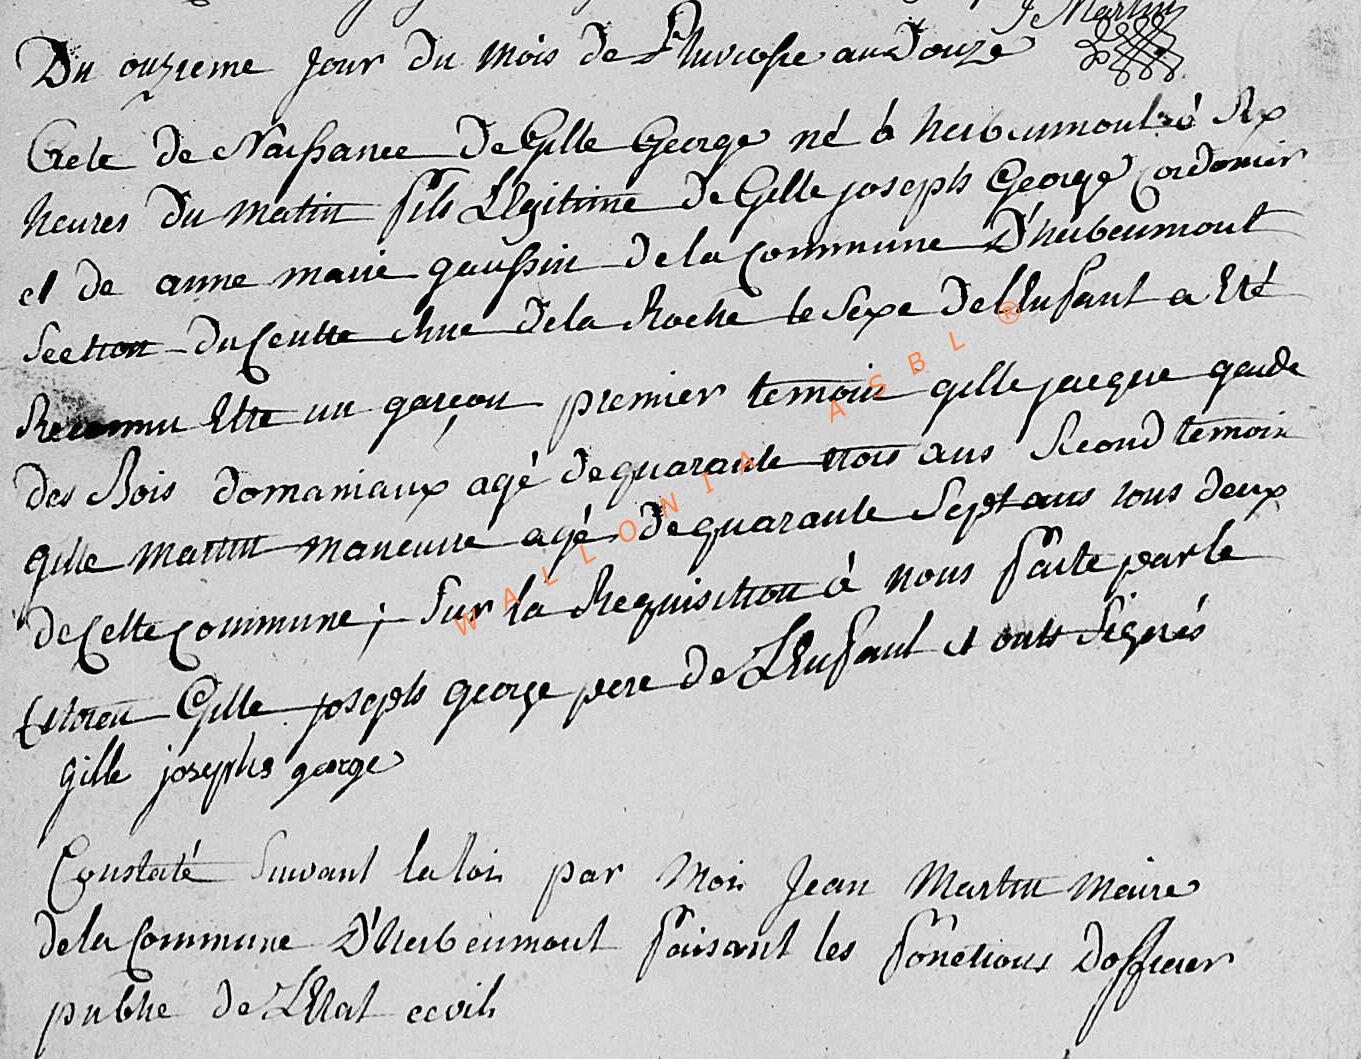 J Martin
Du onzieme jour du mois de Pluviosse an Douze
Acte de Naissance De Gille George né à herbeumont à six
heures du matin fils Légitime de Gille joseph George Cordonier
et de anne marie gaussin de la Commune D'herbeumont
Section du Centre Rue de la Roche le Sexe de l'Enfant a Eté
Reconnu Etre un garçon premier temoin gille jacque garde
des Bois domaniaux agé de quarante trois ans Second temoin
gille martin maneuvre agé de quarante Sept ans tous deux
de Cette Commune ; Sur la Requisition à nous faite par le
Gille joseph george pere de L'Enfant et ont Signés
gille joseph george
Constaté Suivant la loi par Moi Jean Martin Maire
de la Commune D'herbeumont faisant les fonctions Dofficier
publie de L'Etat ccvil
WALLONIA ASBL ®